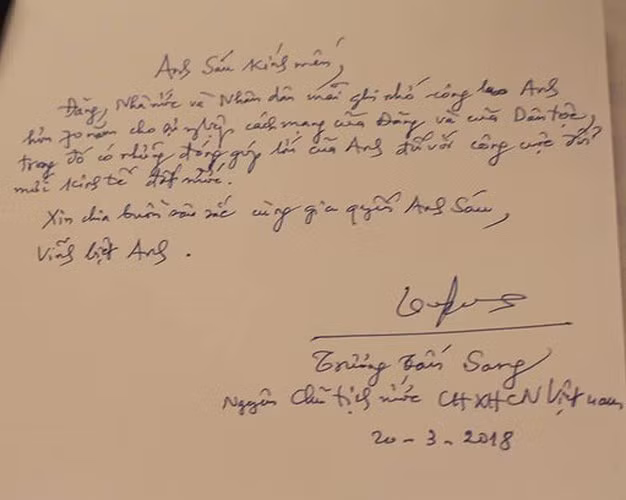 Anh Sáu Kính mến,
Đảng, Nhà nước và Nhân dân mãi ghi nhớ công lao Anh
hơn 70 năm cho sự nghiệp cách mạng của Đảng và của Dân tộc,
trong đó có những đóng góp lớn của Anh đối với công cuộc đổi
mới kinh tế đất nước.
Xin chia buồn sâu sắc cùng gia quyến Anh Sáu,
Vĩnh biệt Anh.
Trương Tấn Sang
Nguyên Chủ tịch nước CHXHCN Việt nam
20-3-2018